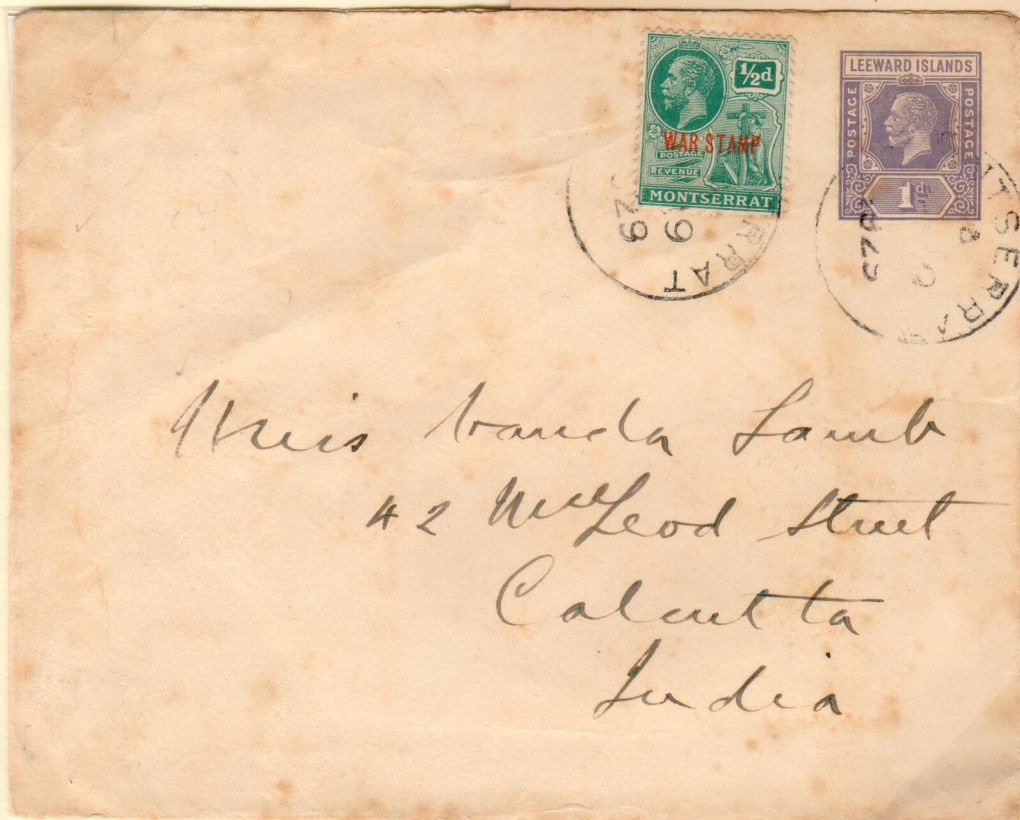 ½d
WAR STAMP
POSTAGE
REVENUE
MONTSERRAT
LEEWARD ISLANDS
POSTAGE
POSTAGE
1d
RRAT
29
NTSERRA
Miss Vanda Lamb
42 McLeod Street
Calcutta
India